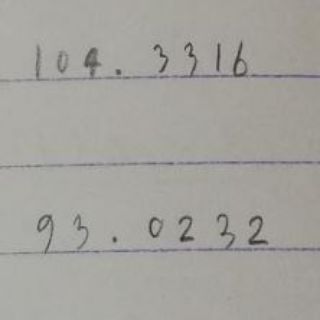 104. 3316
93. 0232